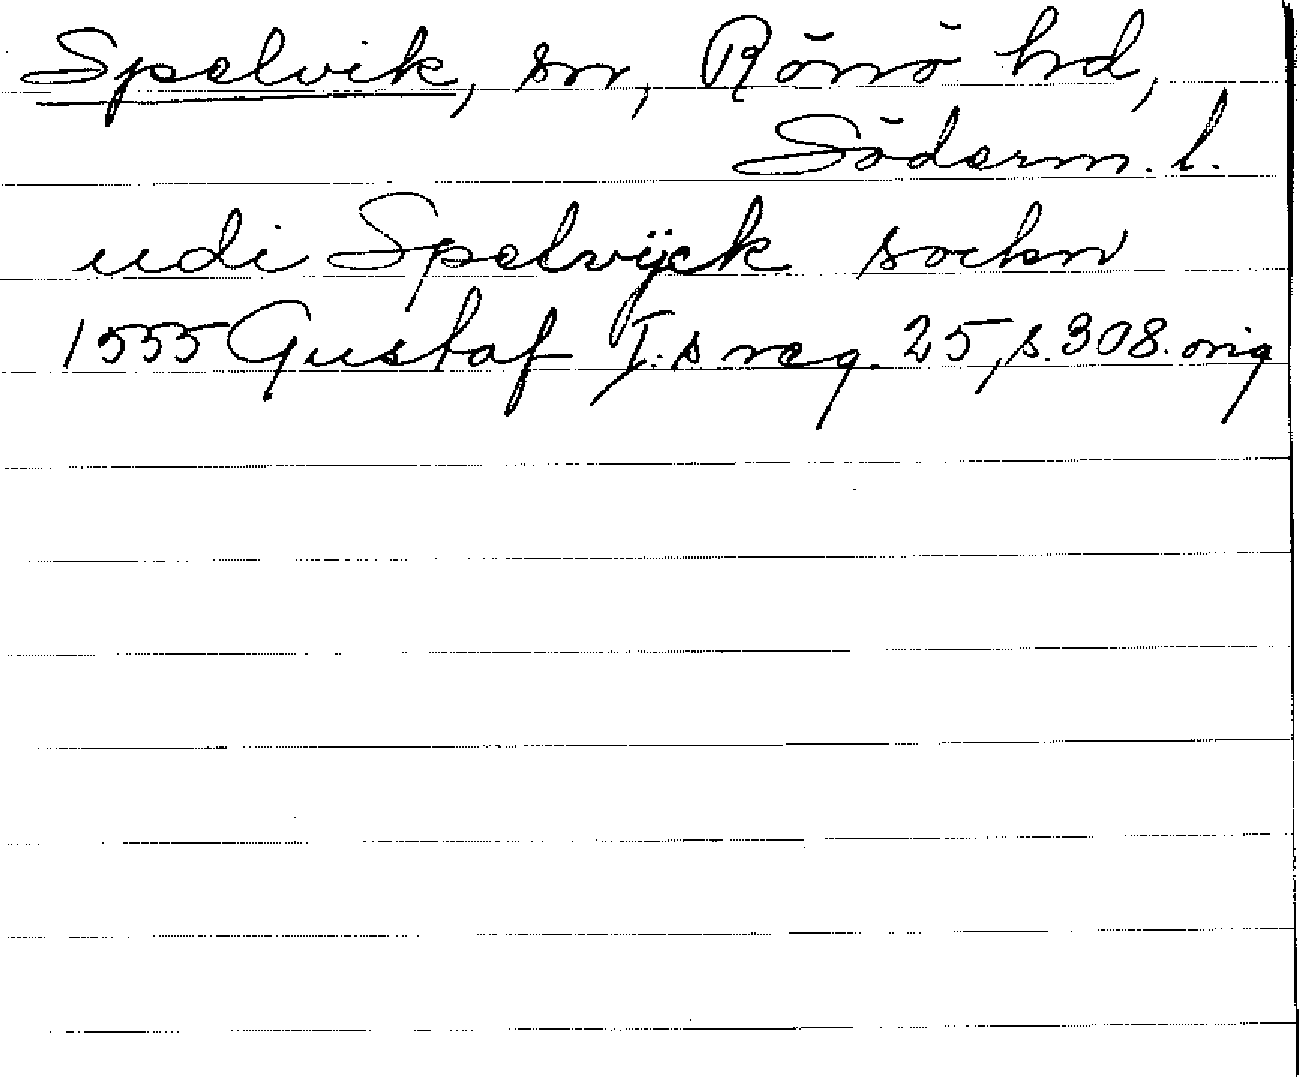 Spelvik, sn, Rönö hd,
Söderm. l.
udi Spelvÿck sockn
1555 Gustaf I:s reg. 25, s. 308. orig